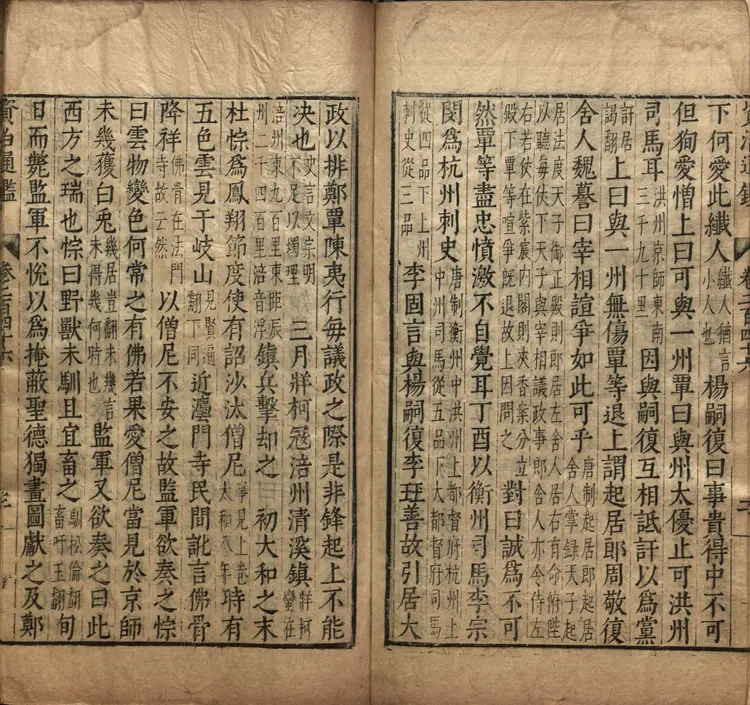 下何愛此纖人纖人猶言小人也楊嗣復曰事貴得中不可
但徇愛憎上曰可與一州覃曰與州太優止可洪州
司馬耳洪州京師東南三千九十里因與嗣復互相詆訐以爲黨
訐居謁翻上曰與一州無傷覃等退上謂起居郎周敬復
舍人魏謩曰宰相諠爭如此可乎唐制起居郎起居舍人掌錄天子起
居法度天子御正殿則郎居左舍人居右有命俯陛以聽每仗下天子與宰相議政事郎舍人亦令侍左
右若仗在紫宸内閣則夾香案分立殿下覃等喧爭旣退故上因問之對曰誠爲不可
然覃等盡忠憤激不自覺耳丁酉以衡州司馬李宗
閔爲杭州刺史唐制衡州中洪州上都督府杭州上州中司馬從五品下大都督府司馬
從四品下上州刺史從三品李固言與楊嗣復李珏善故引居大
資治通鑑 卷二百四十六
政以排鄭覃陳夷行每議政之際是非鋒起上不能
决也史言文宗明不足以燭理三月牂柯寇涪州清溪鎮牂柯蠻在
涪州東九百里東距辰州二千四百里涪音浮鎮兵擊却之 初大和之末
杜悰爲鳳翔節度使有詔沙汰僧尼事見上卷太和八年時有
五色雲見于岐山見賢遍翻下同近灋門寺民間訛言佛骨
降祥佛骨在法門寺故云然以僧尼不安之故監軍欲奏之悰
曰雲物變色何常之有佛若果愛僧尼當見於京師
未幾獲白兎幾居豈翻未幾言未得幾何時也監軍又欲奏之曰此
西方之瑞也悰曰野獸未馴且宜畜之馴松倫翻畜吁玉翻旬
日而斃監軍不悅以爲掩蔽聖德獨畫圖獻之及鄭
資治通鑑 卷二百四十六